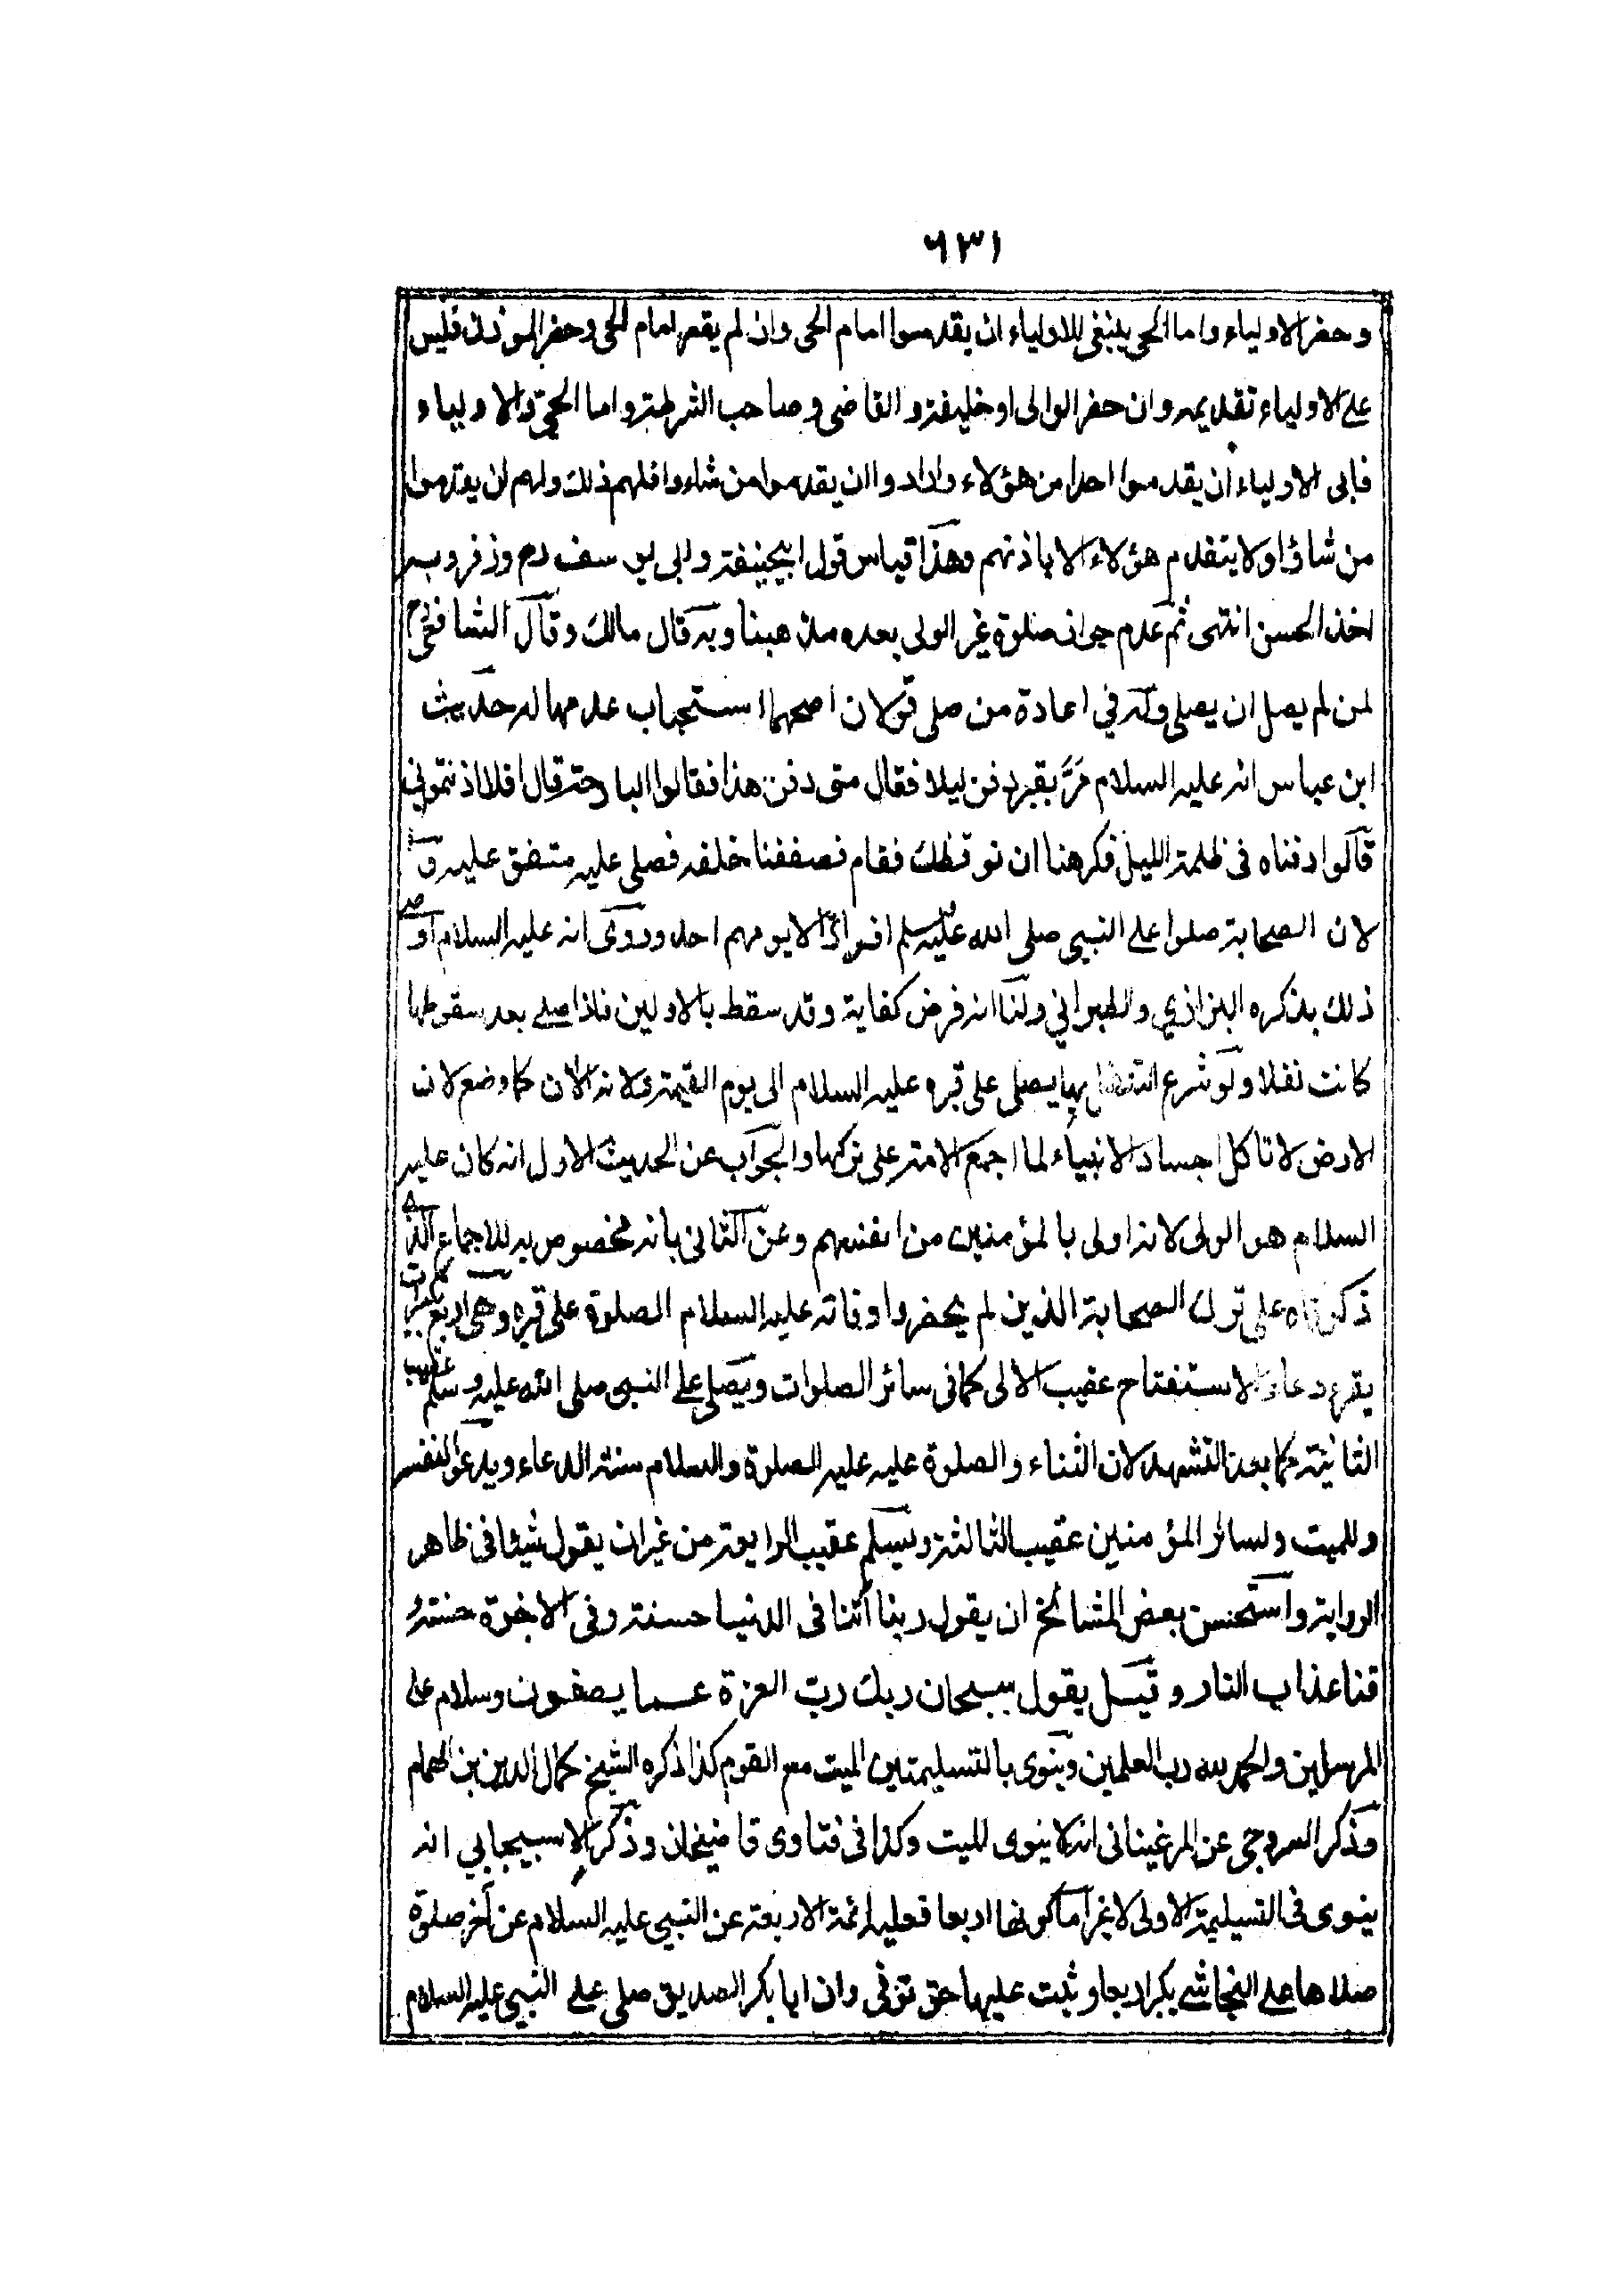 ٦٣١
وحضر الاولياء واما الحى ينبغى للاولياء ان يقدموا امام الحى وان لم يقم امام الحى وحضر المؤذن فليس
على الاولياء تقديمه وان حضر الوالى او خليفته والقاضى وصاحب الشرطة واما الحى والاولياء
فابى الاولياء ان يقدموا احدا من هؤلاء وارادوا ان يقدموا من شاءوا فلهم ذلك ولهم ان يقدموا
من شاؤا ولا يتقدم هؤلاء الا باذنهم وهذا قياس قول ابيحنيفة وابى يوسف رح وزفر وبه
اخذ الحسن انتهى ثم عدم جواز صلوة غير الولى بعده مذهبنا وبه قال مالك وقال الشافعى رح
لمن لم يصل ان يصلى وله فى اعادة من صلى قولان اصحهما استحباب عدمها له حديث
ابن عباس انه عليه السلام مَرَّ بقبر دفن ليلا فقال متى دفن هذا فقالوا البارحة قال افلا اذنتمونى
قالوا دفناه فى ظلمة الليل فكرهنا ان نوقظك فقام فصففنا خلفه فصلى عليه متفق عليه و
لان الصحابة صلوا على النبى صلى الله عليه وسلم افواجا لا يومهم احد وروى انه عليه السلام اوصى
ذلك بذكره البزازي والطبرانى ولنا انه فرض كفاية وقد سقط بالاولين فاذا صلى بعد سقوطها
كانت نفلا ولو شرع التنفل بها يصلى على قبره عليه السلام الى يوم القيمة ولانه الآن كما وضع لان
الارض لا تاكل اجساد الانبياء لما اجمع الامة على تركها والجواب عن الحديث الاول انه كان عليه
السلام هو الولى لانه اولى بالمؤمنين من انفسهم وعن الثانى بانه مخصوص به للاجماع الذى
ذكرناه على ترك الصحابة الذين لم يحضروا وفاته عليه السلام الصلوة على قبره وهى اربع تكبيرات
يقرء دعاء الاستفتاح عقيب الاولى كما فى سائر الصلوات ويصلى على النبى صلى الله عليه وسلم عقيب
الثانية كما بعد التشهد لان الثناء والصلوة عليه عليه الصلوة والسلام سنة الدعاء ويدعو لنفسه
وللميت ولسائر المؤمنين عقيب الثالثة ويسلم عقيب الرابعة من غير ان يقول شيئا فى ظاهر
الرواية واستحسن بعض المشائخ ان يقول ربنا آتنا فى الدنيا حسنة وفى الاخرة حسنة و
قنا عذاب النار وقيل يقول سبحان ربك رب العزة عما يصفون وسلام على
المرسلين والحمد لله رب العلمين وينوى بالتسليمتين الميت مع القوم كذا ذكره الشيخ كمال الدين بن الهمام
وذكر السروجى عن المرغينانى انه لا ينوى للميت وكذا فى فتاوى قاضيخان وذكر الاسبيجابي انه
ينوى فى التسليمة الاولى لا غير اما كونها اربعا فعليه ائمة الاربعة عن النبى عليه السلام عن آخر صلوة
صلاها على النجاشى بكبر اربعا وثبت عليها حتى توفى وان ابا بكر الصديق صلى على النبى عليه السلام